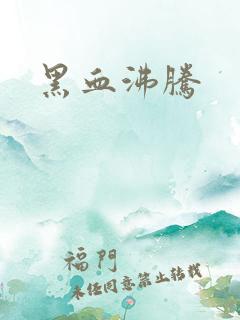 黑血沸騰
福門
未经同意禁止转载